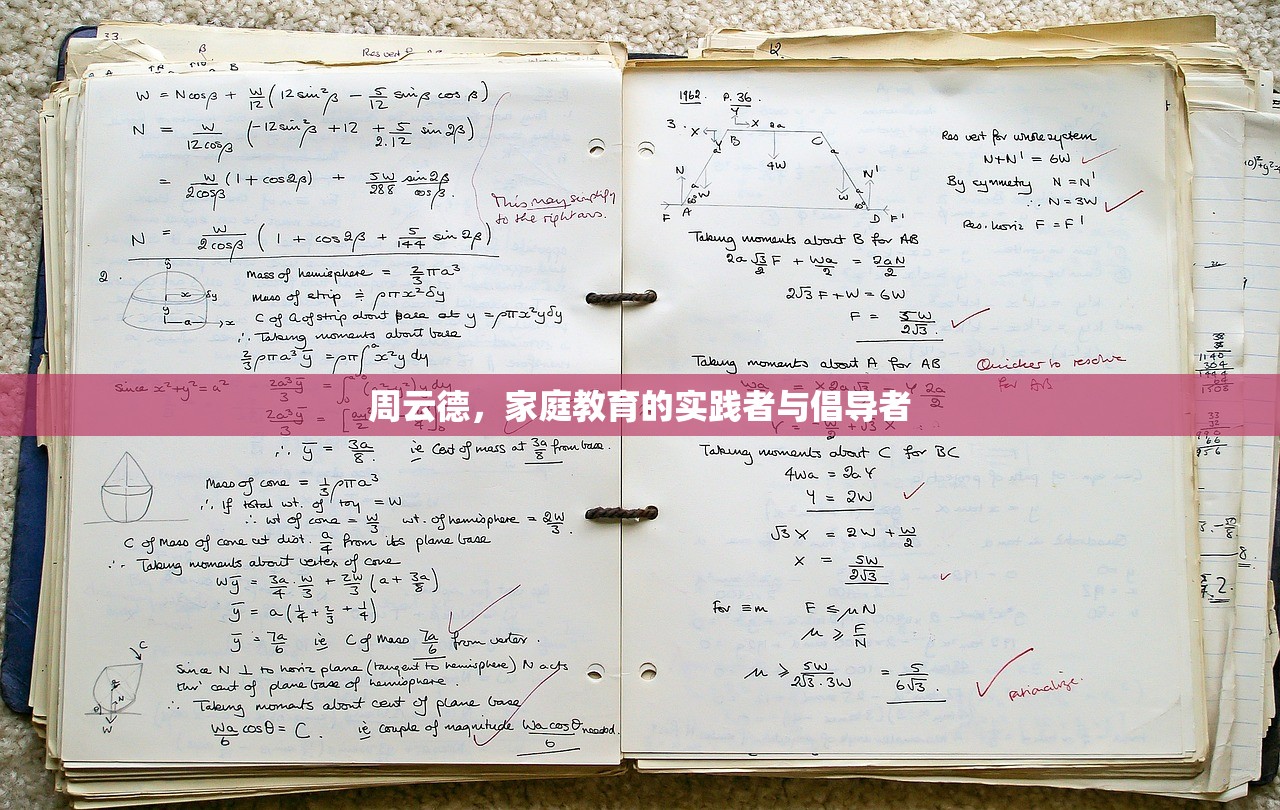 33.
Res vert
β
B
W = Ncosβ + W/12 (12 sin²β − 5/12 sinβ cosβ)
N = W/12cosβ (−12sin²β + 12 + 5/2.12 sin 2β)
= W/2cosβ (1 + cos2β) + 5W/288 sin2β/cosβ.
This may simplify
to the right ans.
N = W/2cosβ (1 + cos2β + 5/144 sin 2β)
2.
y
x
δy
y
a
x
Mass of hemisphere = 2/3 πa³
Mass of strip ≑ ρπx²δy
C of G of strip about base at y = ρπx²yδy
∴ Taking moments about base
2/3 ρπa³ȳ = ρπ∫ x²y dy
Since x²+y² = a²
2a³ȳ/3 =
周云德，家庭教育的实践者与倡导者
∴ ȳ = 3a/8 ie Cent of mass at 3a/8 from base.
Mass of cone = 1/3 ρπa³
∴ If total wt. of toy = W
∴ wt of cone = W/3 wt. of hemisphere = 2W/3.
C of Mass of cone at dist. a/4 from its plane base
∴ Taking moments about vertex of cone
Wȳ = 3a/4 . W/3 + 2W/3 (a + 3a/8)
ȳ = a(1/4 + 2/3 + 1/4)
ȳ = 7a/6 ie C of Mass 7a/6 from vertex.
C
N
W
Since N ⊥ to horiz plane (tangent to hemisphere) N acts
thro' cent of plane base of hemisphere.
∴ Taking moments about cent of plane base
Wa/6 cosθ = C. ie couple of magnitude Wa cosθ/6 needed.
12
1962. P. 36.
3.
Y
X
2a
X
B
C
4W
N
N'
W
W
60°
60°
F
A
D
F'
Res vert for whole system
N+N' = 6W
By symmetry N = N'
∴ N = 3W
Res. horiz F = F'
Taking moments about B for AB
2a √3/2 F + Wa/2 = 2aN/2
2√3 F + W = 6W
F = 5W/2√3.
Taking moments about A for AB
Quicker to resolve
for AB
Taking moments about C for BC
4Wa = 2aY
Y = 2W
√3 X = 2W + W/2
X = 5W/2√3
For ≡m F ≤ μN
μ ≥ F/N
μ ≥ 5W/2√3.3W = 5/6√3.
rationalize.
38
1140
304
1508
33